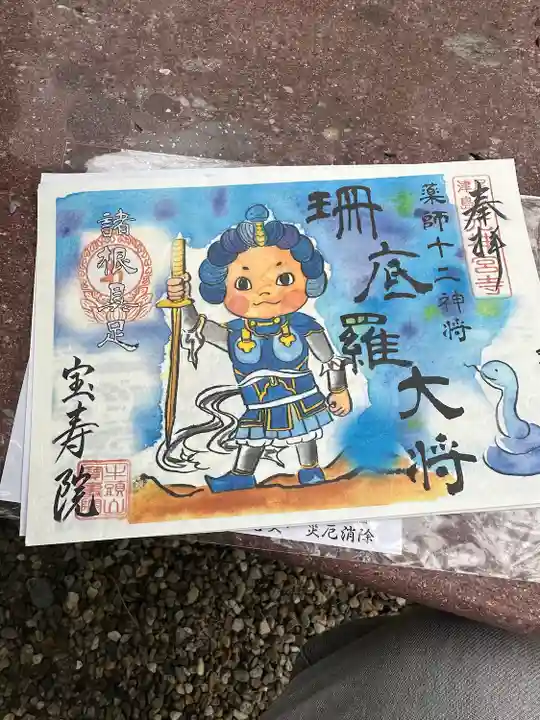 奉拝
薬師十二神将
珊底羅大将
諸根具足
宝寿院
牛頭山
災厄消除